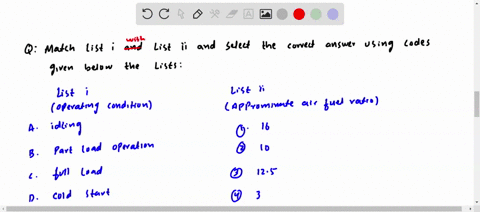 with
Q: Match List i and List ii and select the correct answer using codes
given below the Lists:
List i List ii
(operating condition) (Approminate air fuel ratio)
A. idling ①. 16
B. Part Load operation ② 10
C. full Load ③ 12.5
D. Cold Start ④ 3